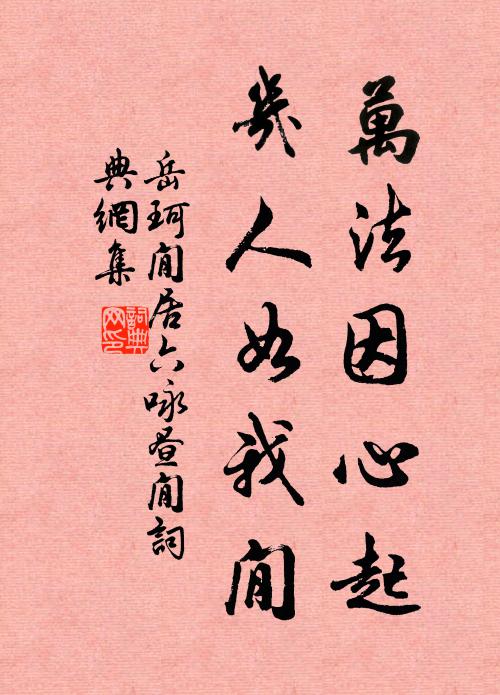 萬法因心起
幾人如我閒
岳珂閒居六咏晝閒詞
典網集
詞典
网印